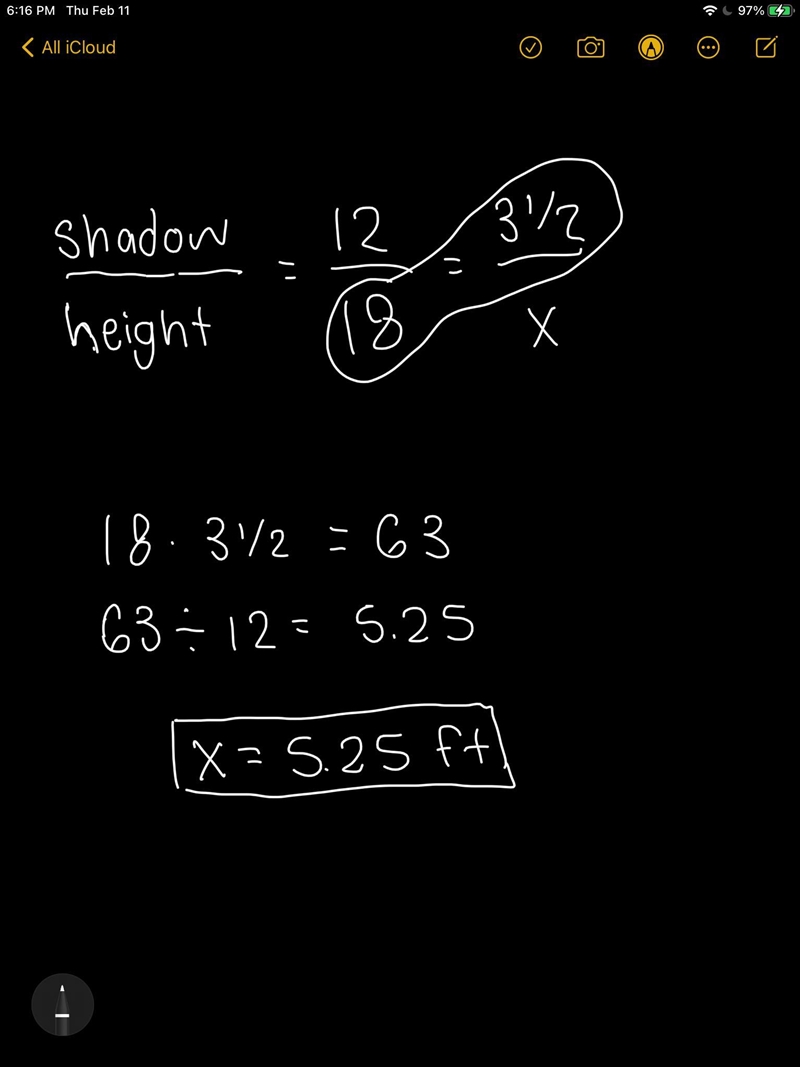 6:16 PM Thu Feb 11 97%
All iCloud
shadow = 12 = 3 1/2
height 18 x
18 · 3 1/2 = 63
63 ÷ 12 = 5.25
x = 5.25 ft